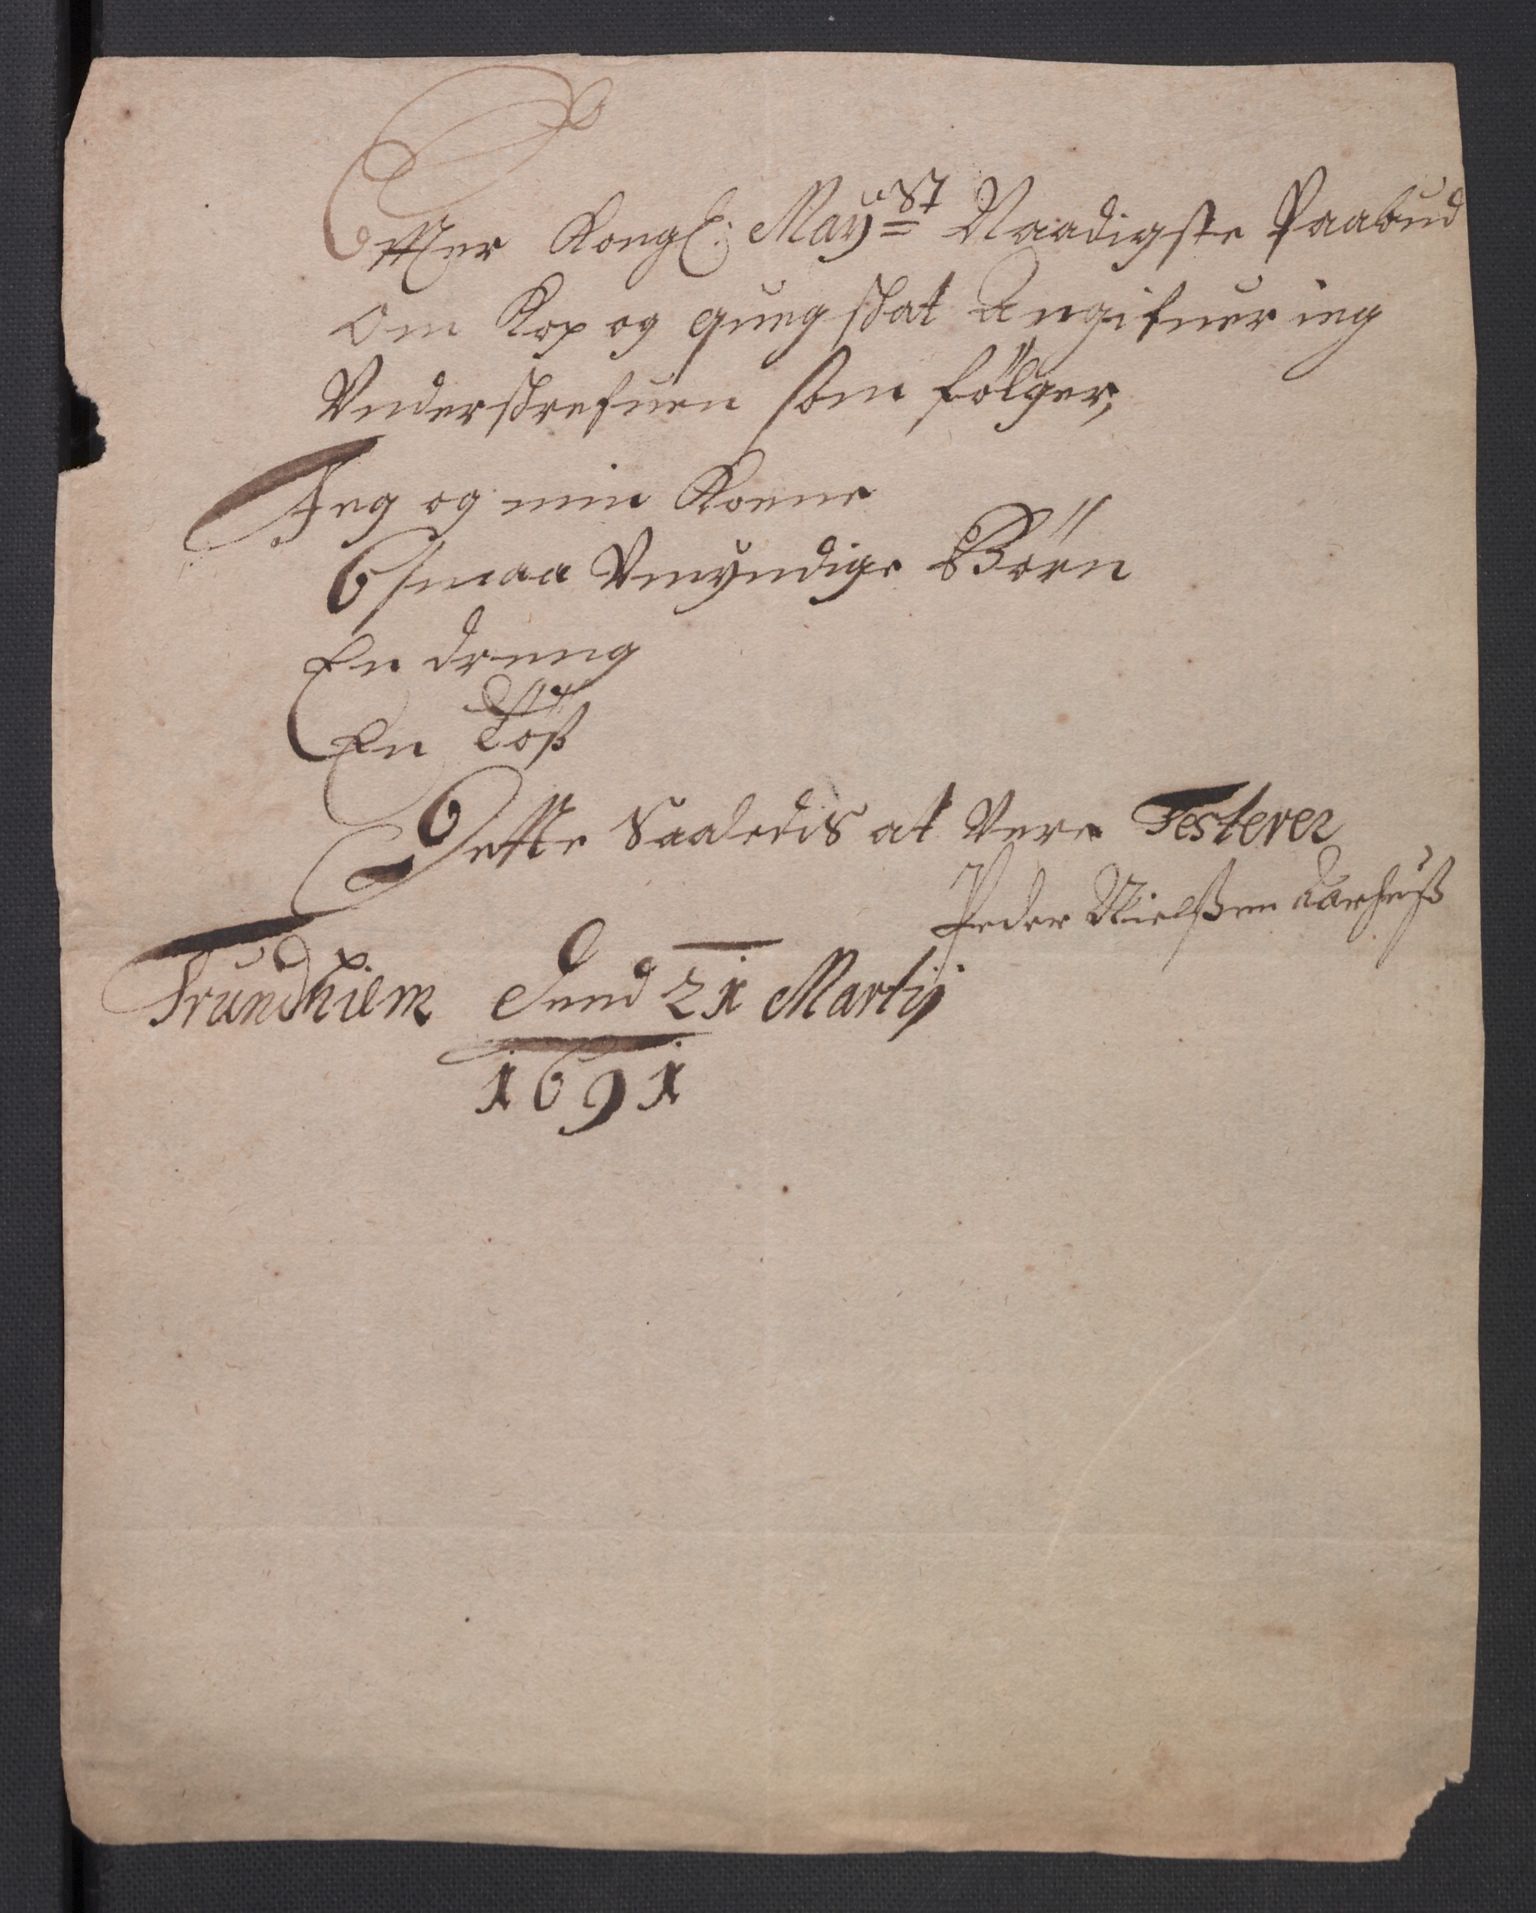 Effter Kongl: May:st Naadigste Paabud
Om Kop og queg skat Angifuer ieg
Underskrefuen som følger,
Jeg og min Kone
6 smaa Umyndige Børn
En dreng
En Tøß
Dette Saaledis at Vere Testerer
Peder Nielßen Aarhuß
Trundhiem Dend 21 Martij
1691